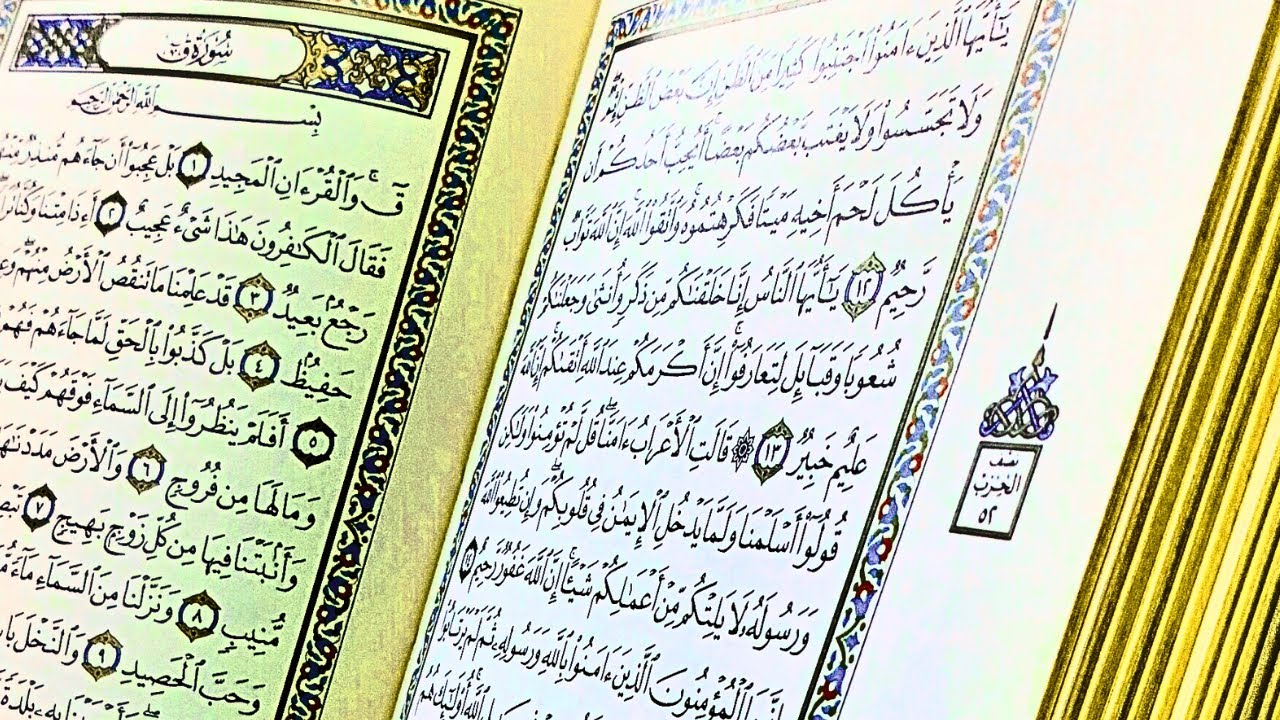 يَـٰٓأَيُّهَا ٱلَّذِينَ ءَامَنُوا۟ ٱجْتَنِبُوا۟ كَثِيرًا مِّنَ ٱلظَّنِّ إِنَّ بَعْضَ ٱلظَّنِّ إِثْمٌ
وَلَا تَجَسَّسُوا۟ وَلَا يَغْتَب بَّعْضُكُم بَعْضًا أَيُحِبُّ أَحَدُكُمْ أَن
يَأْكُلَ لَحْمَ أَخِيهِ مَيْتًا فَكَرِهْتُمُوهُ وَٱتَّقُوا۟ ٱللَّهَ إِنَّ ٱللَّهَ تَوَّابٌ
رَّحِيمٌ ١٢ يَـٰٓأَيُّهَا ٱلنَّاسُ إِنَّا خَلَقْنَـٰكُم مِّن ذَكَرٍ وَأُنثَىٰ وَجَعَلْنَـٰكُمْ
شُعُوبًا وَقَبَآئِلَ لِتَعَارَفُوٓا۟ إِنَّ أَكْرَمَكُمْ عِندَ ٱللَّهِ أَتْقَىٰكُمْ إِنَّ ٱللَّهَ
عَلِيمٌ خَبِيرٌ ١٣ ۞ قَالَتِ ٱلْأَعْرَابُ ءَامَنَّا قُل لَّمْ تُؤْمِنُوا۟ وَلَـٰكِن
قُولُوٓا۟ أَسْلَمْنَا وَلَمَّا يَدْخُلِ ٱلْإِيمَـٰنُ فِى قُلُوبِكُمْ وَإِن تُطِيعُوا۟ ٱللَّهَ
وَرَسُولَهُۥ لَا يَلِتْكُم مِّنْ أَعْمَـٰلِكُمْ شَيْـًٔا إِنَّ ٱللَّهَ غَفُورٌ رَّحِيمٌ ١٤
إِنَّمَا ٱلْمُؤْمِنُونَ ٱلَّذِينَ ءَامَنُوا۟ بِٱللَّهِ وَرَسُولِهِۦ ثُمَّ لَمْ يَرْتَابُوا۟
ٱللَّهِ أُو۟لَـٰٓئِكَ هُمُ
نصف
الحزب
٥٢
سُورَةُ ق
بِسْمِ ٱللَّهِ ٱلرَّحْمَـٰنِ ٱلرَّحِيمِ
قٓ وَٱلْقُرْءَانِ ٱلْمَجِيدِ ١ بَلْ عَجِبُوٓا۟ أَن جَآءَهُم مُّنذِرٌ مِّنْهُمْ
فَقَالَ ٱلْكَـٰفِرُونَ هَـٰذَا شَىْءٌ عَجِيبٌ ٢ أَءِذَا مِتْنَا وَكُنَّا تُرَابًا
رَجْعٌۢ بَعِيدٌ ٣ قَدْ عَلِمْنَا مَا تَنقُصُ ٱلْأَرْضُ مِنْهُمْ
حَفِيظٌۢ ٤ بَلْ كَذَّبُوا۟ بِٱلْحَقِّ لَمَّا جَآءَهُمْ فَهُمْ
٥ أَفَلَمْ يَنظُرُوٓا۟ إِلَى ٱلسَّمَآءِ فَوْقَهُمْ كَيْفَ
وَمَا لَهَا مِن فُرُوجٍ ٦ وَٱلْأَرْضَ مَدَدْنَـٰهَا
وَأَنۢبَتْنَا فِيهَا مِن كُلِّ زَوْجٍۭ بَهِيجٍ ٧
مُّنِيبٍ ٨ وَنَزَّلْنَا مِنَ ٱلسَّمَآءِ مَآءً
وَحَبَّ ٱلْحَصِيدِ ٩ وَٱلنَّخْلَ
بِهِۦ بَلْدَةً